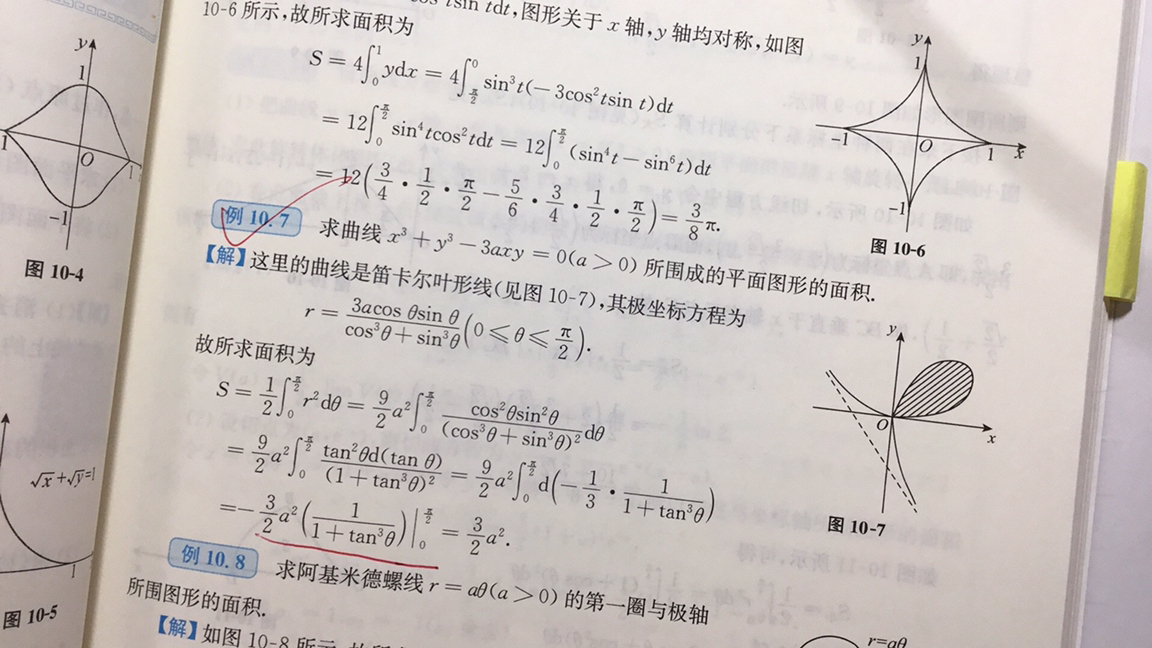 tsin tdt,图形关于 x 轴,y 轴均对称,如图
10-6 所示,故所求面积为
S = 4∫₀¹ ydx = 4∫_{π/2}^0 sin³t(−3cos²tsin t)dt
= 12∫₀^{π/2} sin⁴tcos²tdt = 12∫₀^{π/2} (sin⁴t − sin⁶t)dt
= 12(3/4 · 1/2 · π/2 − 5/6 · 3/4 · 1/2 · π/2) = 3/8 π.
例 10.7 求曲线 x³ + y³ − 3axy = 0(a > 0) 所围成的平面图形的面积.
【解】这里的曲线是笛卡尔叶形线(见图 10-7),其极坐标方程为
r = 3acos θsin θ/(cos³θ + sin³θ) (0 ≤ θ ≤ π/2).
故所求面积为
S = 1/2 ∫₀^{π/2} r²dθ = 9/2 a² ∫₀^{π/2} cos²θsin²θ/(cos³θ + sin³θ)² dθ
= 9/2 a² ∫₀^{π/2} tan²θd(tan θ)/(1 + tan³θ)² = 9/2 a² ∫₀^{π/2} d(−1/3 · 1/(1 + tan³θ))
=− 3/2 a² (1/(1 + tan³θ))|₀^{π/2} = 3/2 a².
例 10.8 求阿基米德螺线 r = aθ(a > 0) 的第一圈与极轴
所围图形的面积.
【解】如图 10-8 所示
y
1
1
O
1
−1
图 10-4
√x+√y=1
1
图 10-5
y
1
−1
O
1
x
−1
图 10-6
y
O
x
图 10-7
r=aθ